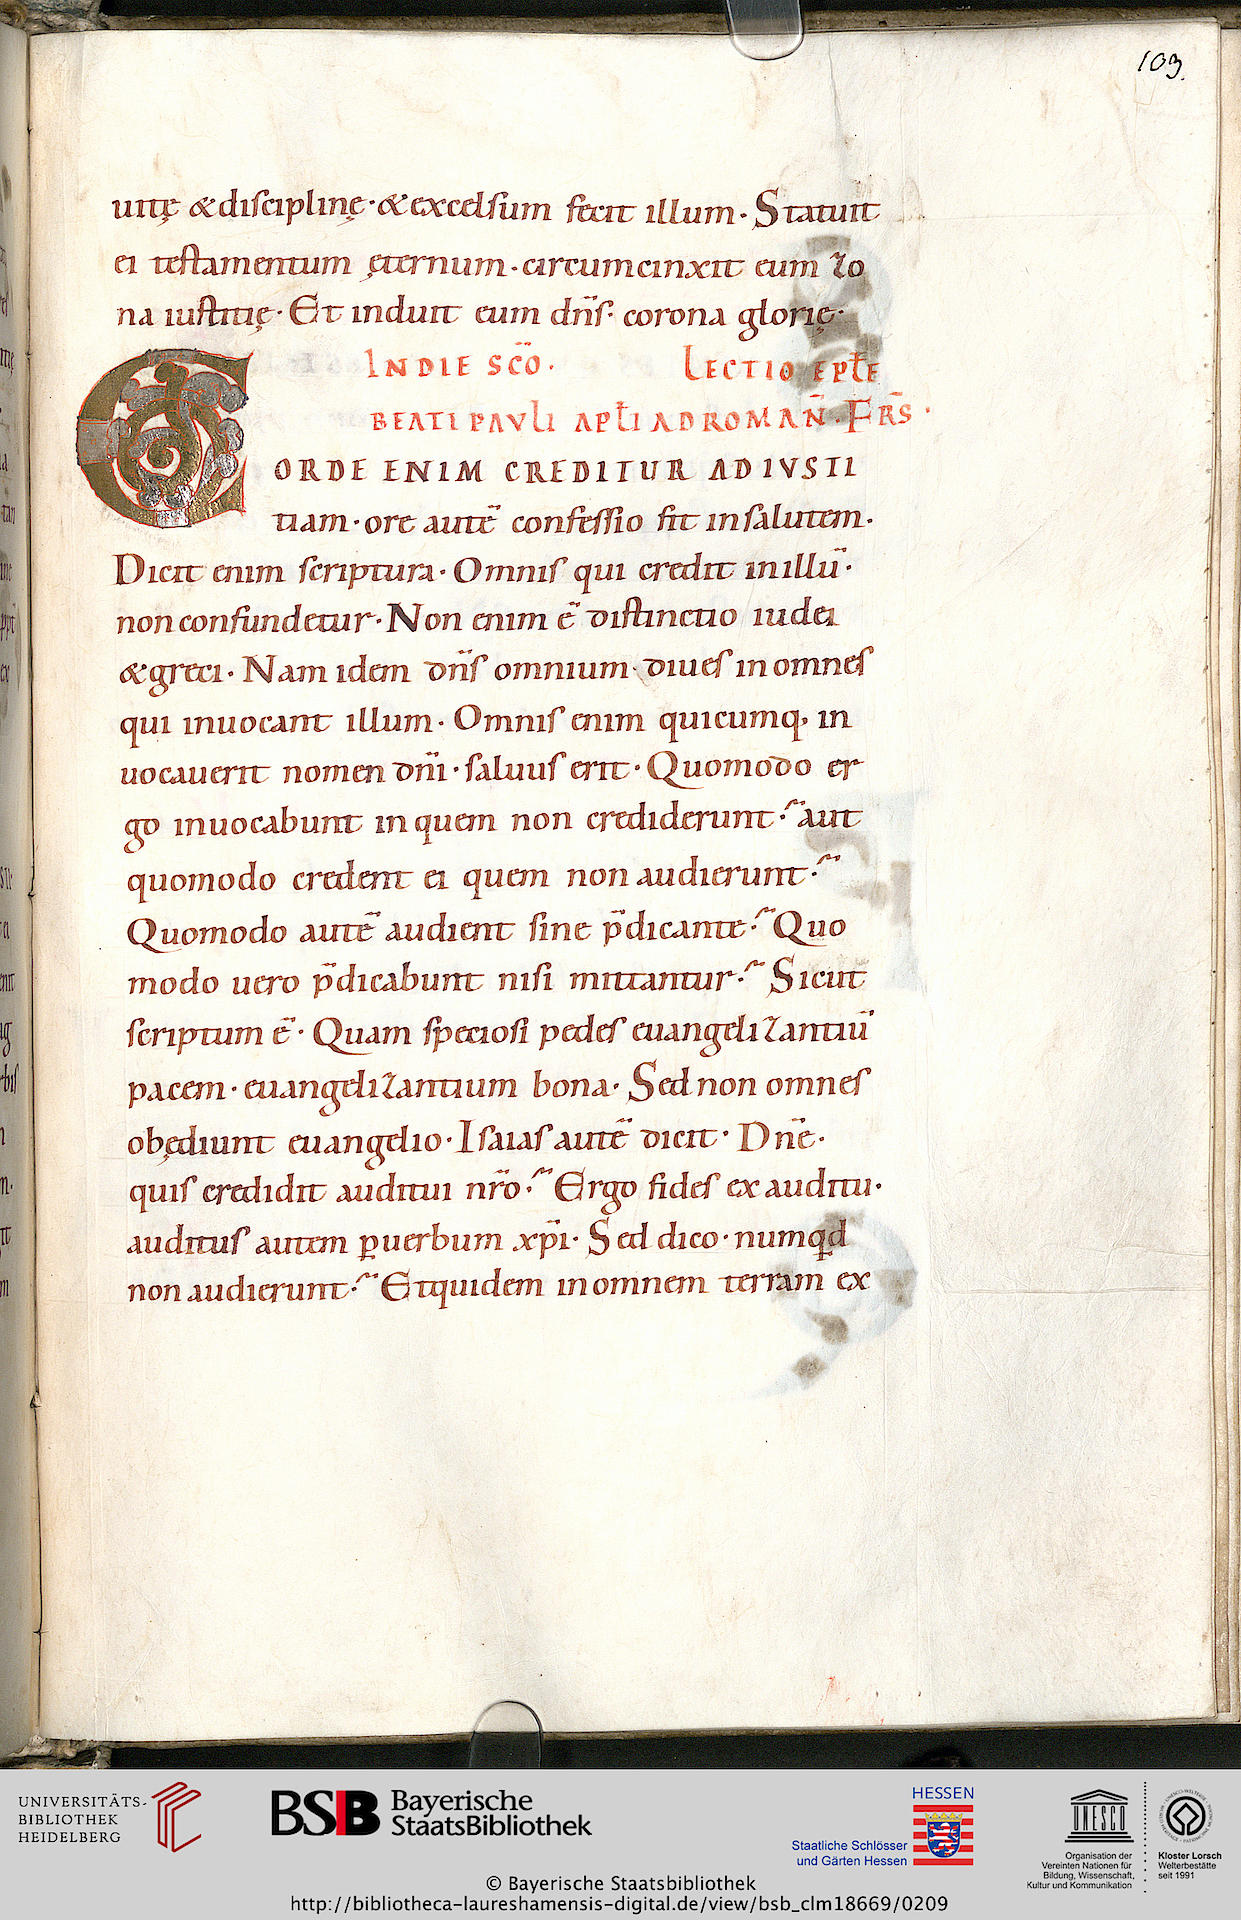 103.
uitę & disciplinę · & excelsum fecit illum · Statuit
ei testamentum ęternum · circumcinxit eum zo
na iustitię · Et induit eum dn̄s · corona glorię ·
IN DIE SC̄O . LECTIO EPŁE
BEATI PAVLI APŁI AD ROMAN̄ . FR̄S ·
CORDE ENIM CREDITUR AD IVSTI
tiam · ore autē confessio fit in salutem .
Dicit enim scriptura · Omnis qui credit in illū ·
non confundetur · Non enim ē distinctio iudei
& greci · Nam idem dn̄s omnium · diues in omnes
qui inuocant illum · Omnis enim quicumq, in
uocauerit nomen dn̄i · saluus erit · Quomodo er
go inuocabunt in quem non crediderunt · aut
quomodo credent ei quem non audierunt ·
Quomodo autē audient sine p̄dicante · Quo
modo uero p̄dicabunt nisi mittantur · Sicut
scriptum ē · Quam speciosi pedes euangelizantiū
pacem · euangelizantium bona · Sed non omnes
obędiunt euangelio · Isaias autē dicit · Dn̄e ·
quis credidit auditui nr̄o · Ergo fides ex auditu ·
auditus autem ꝑ uerbum xp̄i · Sed dico · numqd
non audierunt · Et quidem in omnem terram ex
UNIVERSITÄTS-
BIBLIOTHEK
HEIDELBERG
BSB Bayerische
StaatsBibliothek
HESSEN
Staatliche Schlösser
und Gärten Hessen
UNESCO
Organisation der
Vereinten Nationen für
Bildung, Wissenschaft,
Kultur und Kommunikation
Kloster Lorsch
Welterbestätte
seit 1991
© Bayerische Staatsbibliothek
http://bibliotheca-laureshamensis-digital.de/view/bsb_clm18669/0209